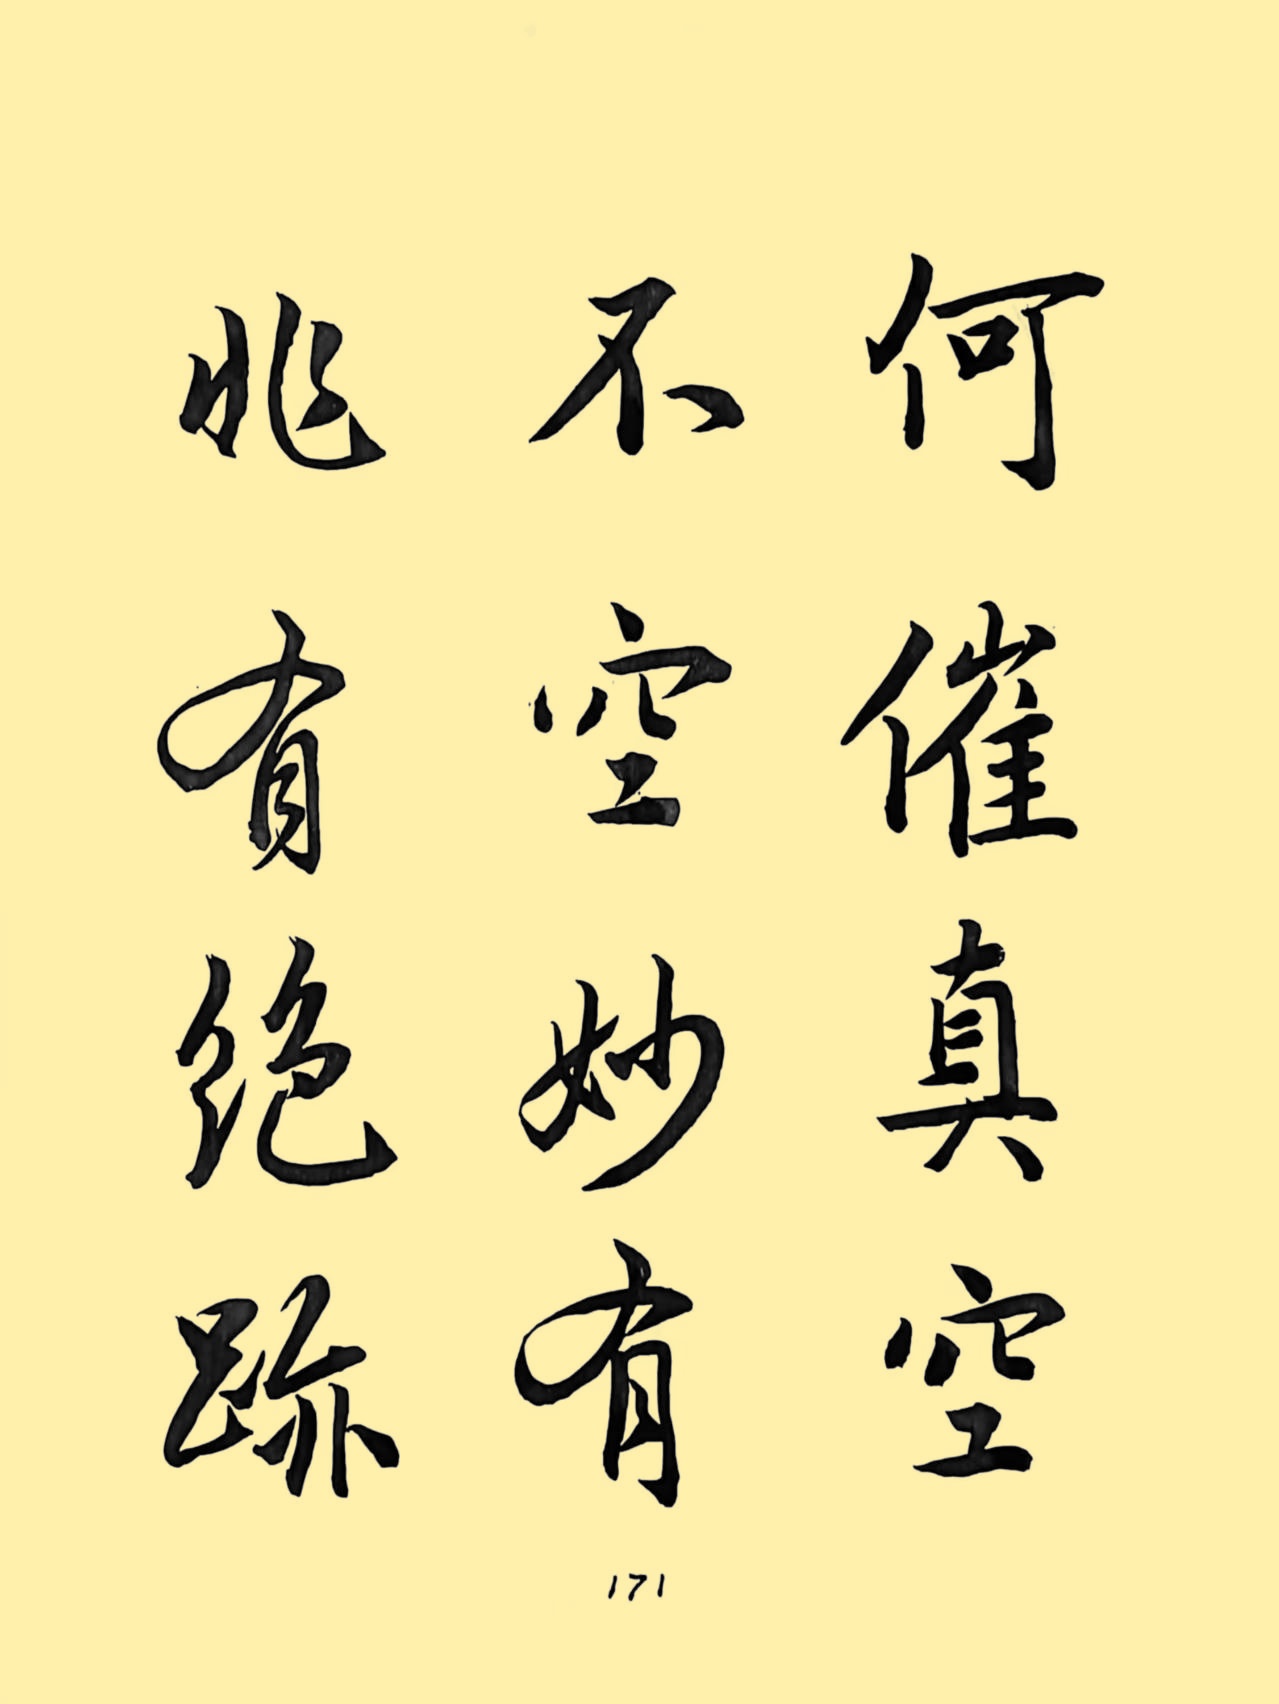 何催真空
不空妙有
兆有绝跡
171